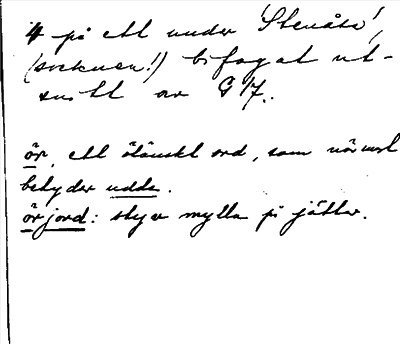 4 på ett under 'Stenåsa'
(socknen!) bifogat ut-
snitt av G 17.
ör, ett öländskt ord, som närmast
betyder udde.
örjord: styv mylla på jättar.